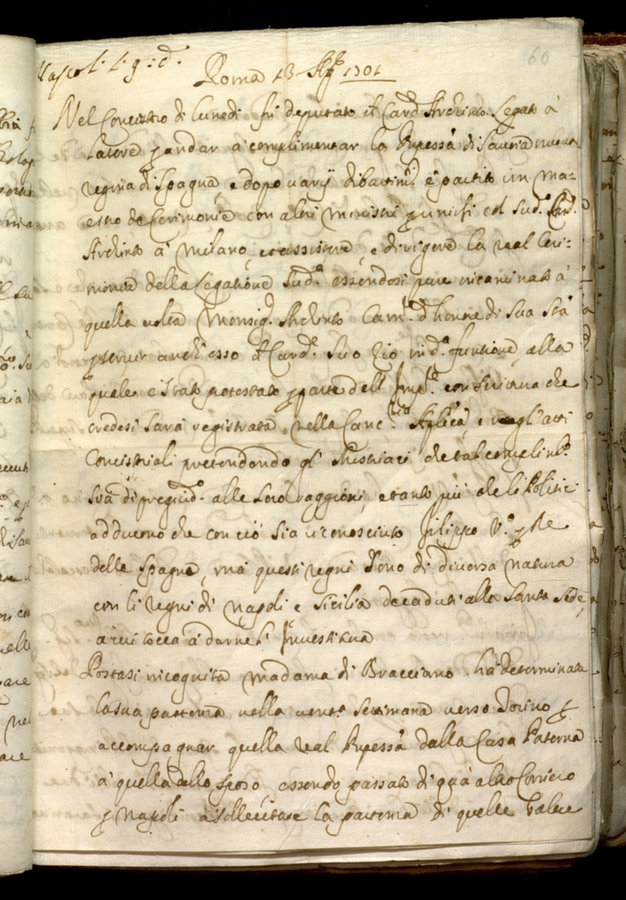 60
Roma 13 Agto 1701
Nel Concistro di lunedi fu deputato il Card. Archinto Legato à
Latere p andar à complimentar la Ppessa di Savoia nuova
regina di Spagna, e dopo varij dibattimti è partito un ma-
estro de Cerimonie con altri ministri p unirsi col Sudo Card.
Archinto à Milano, et assistere, e dirigere la real Ceri-
monia della Legatione Suda essendosi pure incaminato à
quella volta Monsigr Archinto Camre d'honore di Sua Stà
p servir anch'esso il Card. Suo Zio in da funtione, alla
quale è stato protestato p parte dell'Impre con scrittura che
credesi sarà registrata nella Canc. Aplica, e negl'atti
Concistoriali pretendendo gl'Austriaci che tal complimto
Sia di pregiudo alle loro raggioni, e tanto più che li Politici
adducono che con ciò sia riconosciuto Filippo Vo p Re
delle Spagne, mà questi regni sono di diversa natura
con li regni di Napoli e Sicilia decaduti alla Santa Sede,
a cui tocca à darne l'Investitura
Portatasi incognita madama di Bracciano hà determinata
la sua partenza nella ventra Settimana verso Torino p
accompagnar quella real Ppessa dalla Casa Paterna
à quella dello sposo essendo passato di quà altro Corriero
p Napoli à sollecitare la partenza di quelle Galere